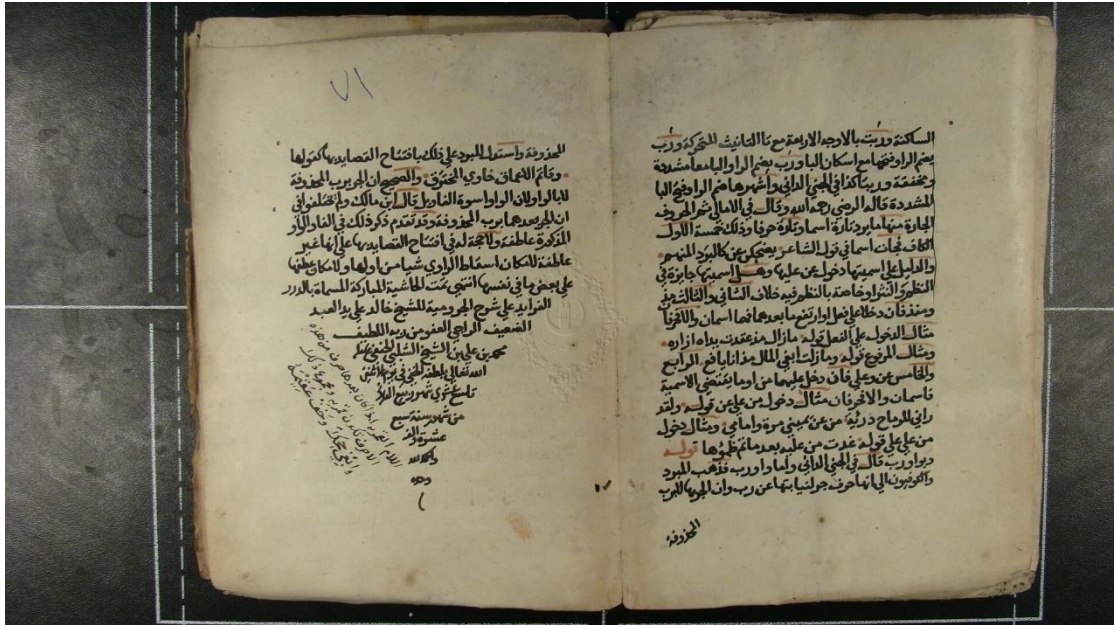 الساكنة وربت بالاوجه الاربعة مع تا التانيث المتحركة ورب
بضم الرا وفتحها مع اسكان البا ورب بضم الرا والبا معا مشددة
ومخففة وربتا كذا في الجني الداني واشهرها ضم الرا وفتح البا
المشددة قاله الرضي رحمه الله وقال في الامالي ثم الحروف
الجارة منها ما يرد تارة اسما وتارة حرفا وذلك خمسة الاول
الكاف فجات اسما في قول الشاعر يضحكن عن كالبرد المنهم
والدليل علي اسميتها دخول عن عليها وهل اسميتها جايزة في
النظم والنثر او خاصة بالنظم فيه خلاف الثاني والثالث مذ
ومنذ فان دخلا علي فعل او ارتفع ما بعدهما فهما اسمان والا فحرفا
مثال الدخول علي الفعل قوله ما زال مذ عقدت يداه ازاره
ومثال المرفوع قوله وما زلت ابغي المال مذ انا يافع الرابع
والخامس عن وعلي فان دخل عليهما من اوما يقتضي الاسمية
فاسمان والا فحرفان مثال دخول من علي عن قوله ولقد
اراني للرماح دريئة من عن يميني مرة وامامي ومثال دخول
من علي علي قوله غدت من عليه بعد ما تم ظمؤها قوله
وبواو رب قال في الجني الداني واما واو رب فذهب المبرد
والكوفيون الي انها حرف جر لنيابتها عن رب وان الجر بها لا برب
المحذوفة
٧١
المحذوفة واستدل المبرد علي ذلك بافتتاح القصايد بها كقولها
وقاتم الاعماق خاوي المخترق والصحيح ان الجر برب المحذوفة
لا بالواو لان الواو اسوة الفا وبل قال ابن مالك ولم يختلفوا في
ان الجر بعدهما برب المحذوفة وقد تقدم ذكر ذلك في الفا والواو
المذكورة عاطفة ولا حجة له في افتتاح القصايد بها علي انها غير
عاطفة لامكان اسقاط الراوي شيا من اولها ولامكان عطفها
علي بعض ما في نفسها انتهي تمت الحاشية المباركة المسماة بالدرر
الفرايد علي شرح الجرومية للشيخ خالد علي يد العبد
الضعيف الراجي العفو من ربه اللطيف
محمد بن علي بن الشيخ الشلبي الحنفي
الله تعالي بلطفه الخفي في يوم الاثنين
تاسع عشري شهر ربيع
من شهور سنة سبع
عشرة والف
والحمد لله
وحده